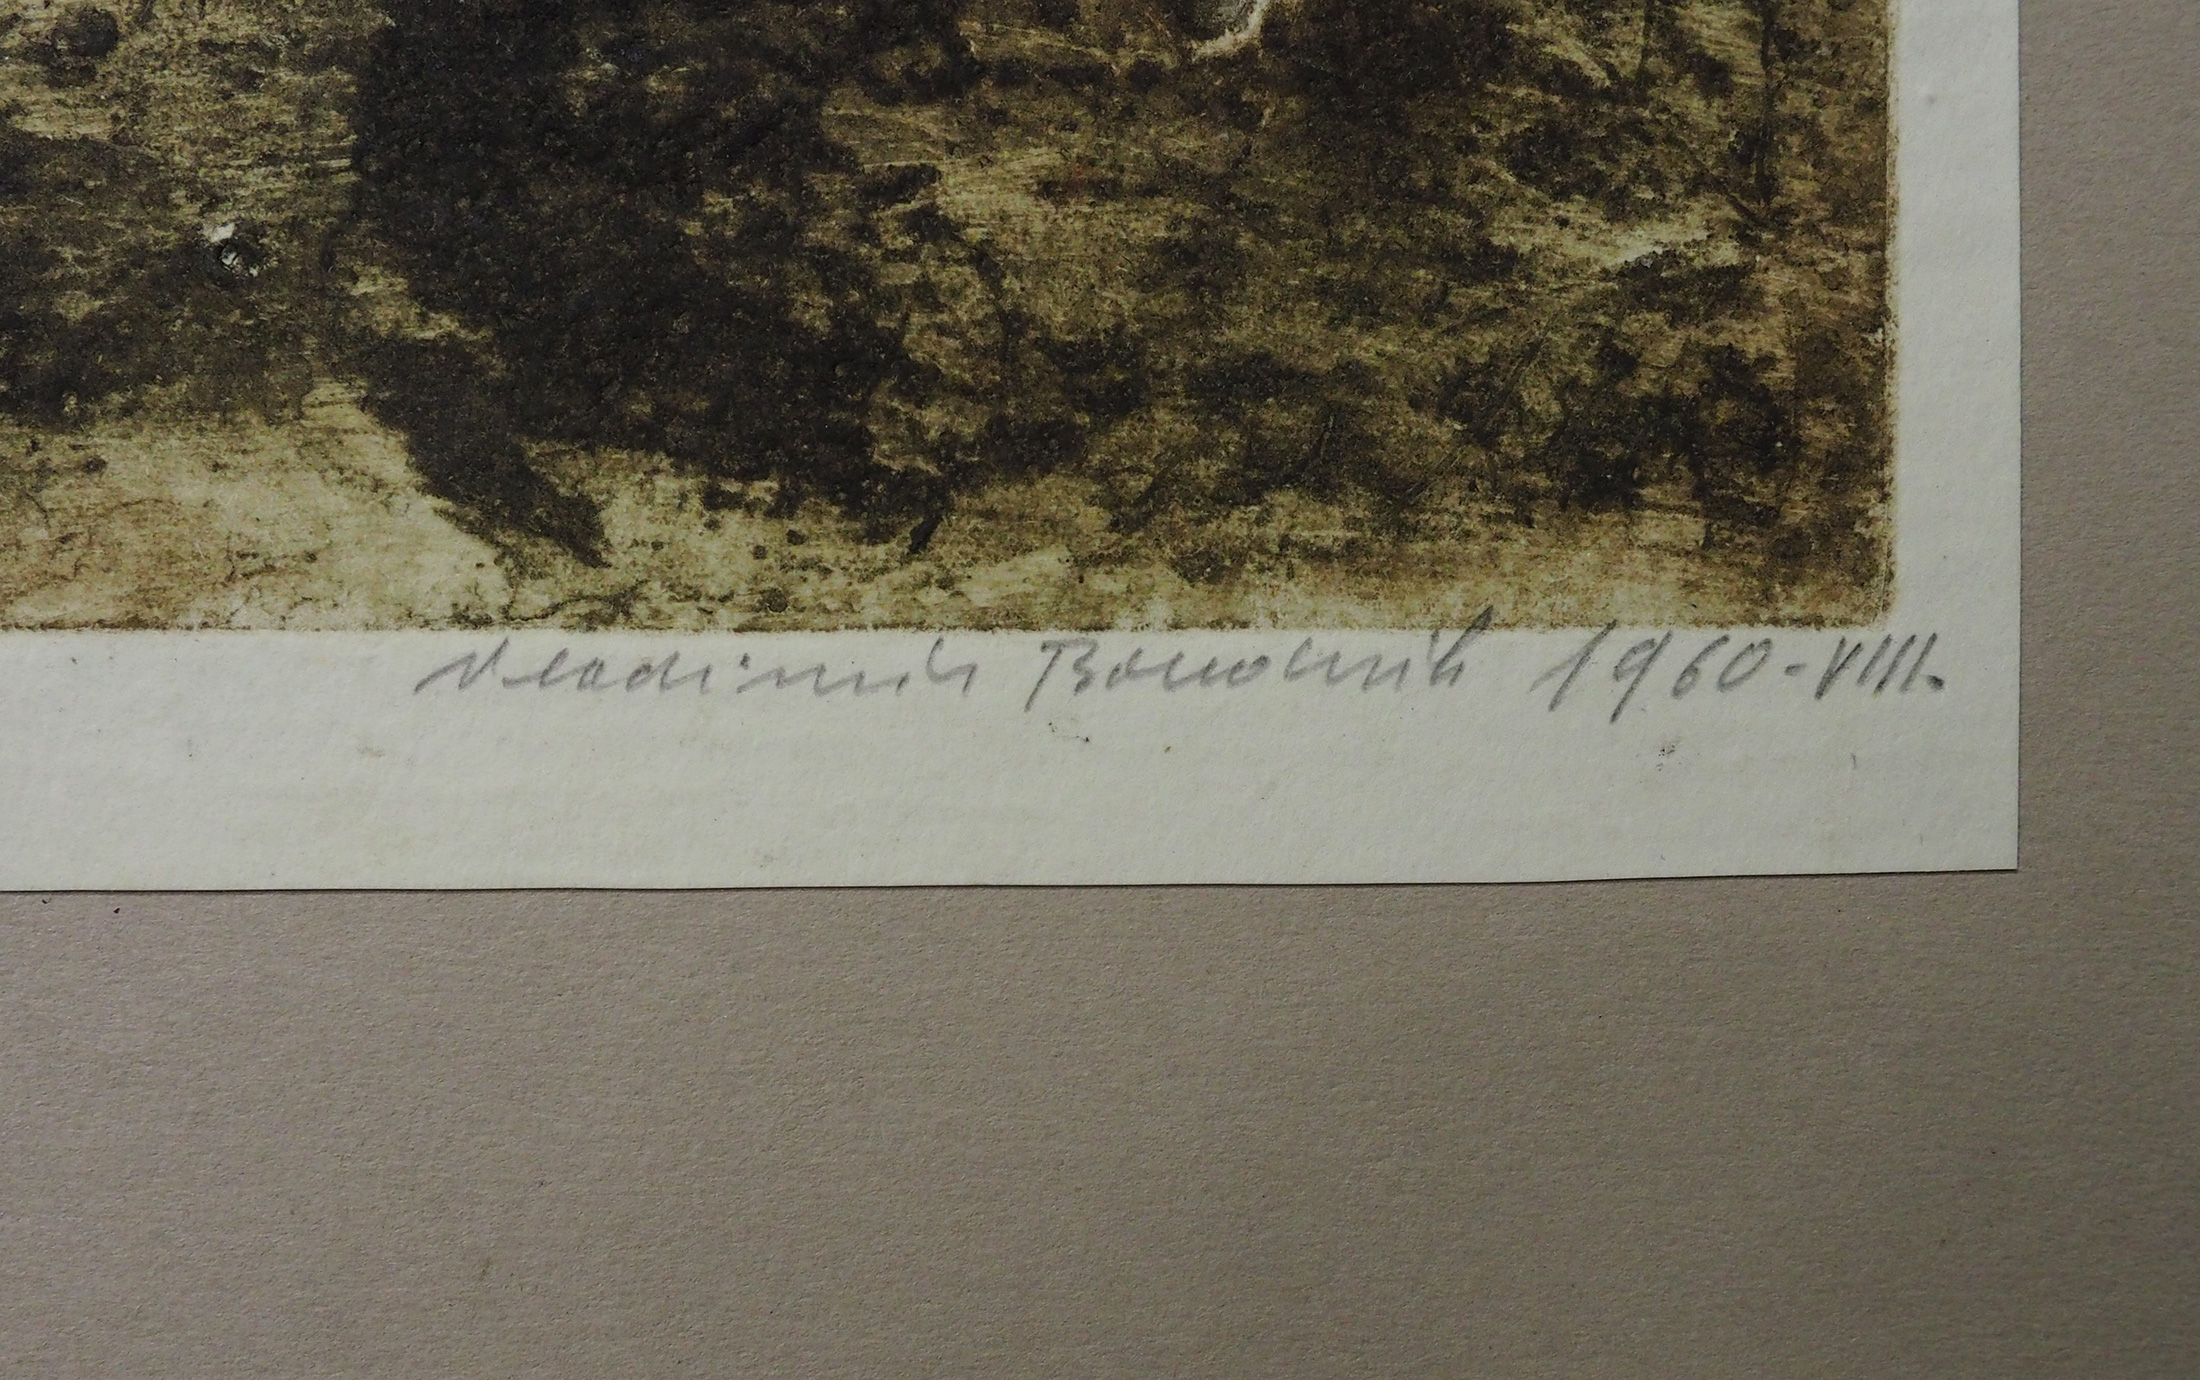 Vladimír Boudník 1960-VIII.